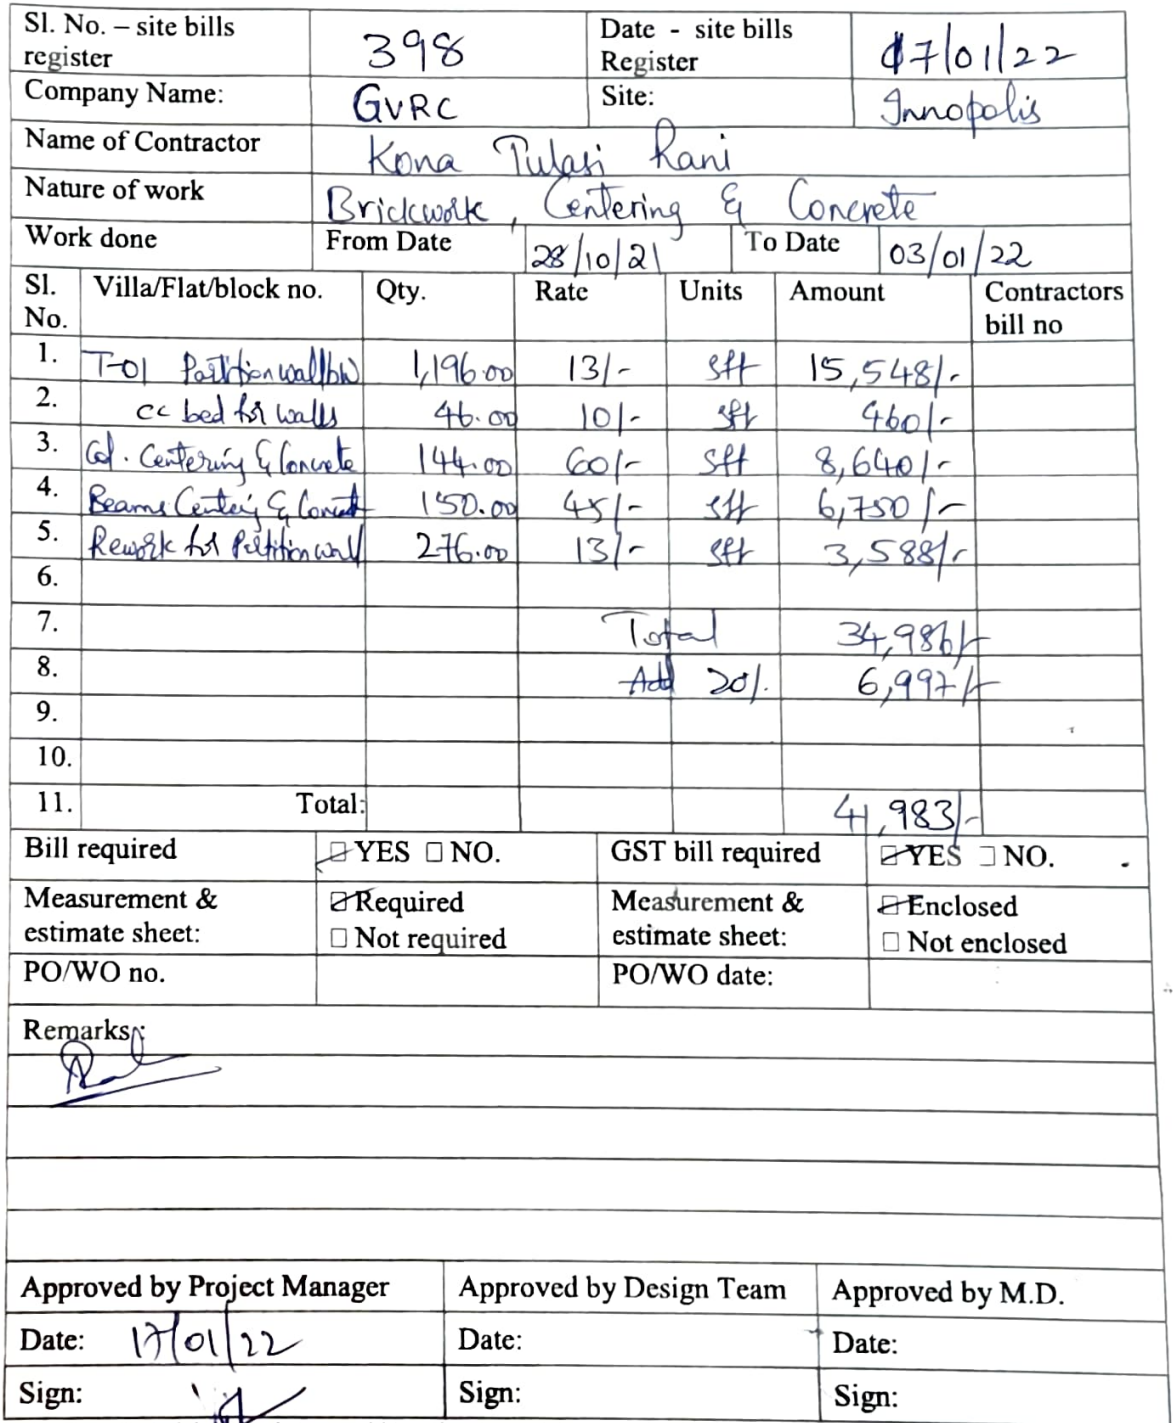 Sl. No. – site bills register 398 Date - site bills Register 17/01/22
Company Name: GVRC Site: Innopolis
Name of Contractor Kona Tulasi Rani
Nature of work Brickwork, Centering & Concrete
Work done From Date 28/10/21 To Date 03/01/22
Sl. No. Villa/Flat/block no. Qty. Rate Units Amount Contractors bill no
1. T-01 Partition wall bw 1,196.00 13/- sft 15,548/-
2. cc bed for walls 46.00 10/- sft 460/-
3. Col. Centering & Concrete 144.00 60/- sft 8,640/-
4. Beams Centering & Concret 150.00 45/- sft 6,750/-
5. Rework for Partition wall 276.00 13/- sft 3,588/-
6.
7. Total 34,986/-
8. Add 20%. 6,997/-
9.
10.
11. Total: 41,983/-
Bill required ☑ YES ☐ NO. GST bill required ☑ YES ☐ NO.
Measurement & estimate sheet: ☑ Required ☐ Not required Measurement & estimate sheet: ☑ Enclosed ☐ Not enclosed
PO/WO no. PO/WO date:
Remarks:
Approved by Project Manager Approved by Design Team Approved by M.D.
Date: 17/01/22 Date: Date:
Sign: Sign: Sign: